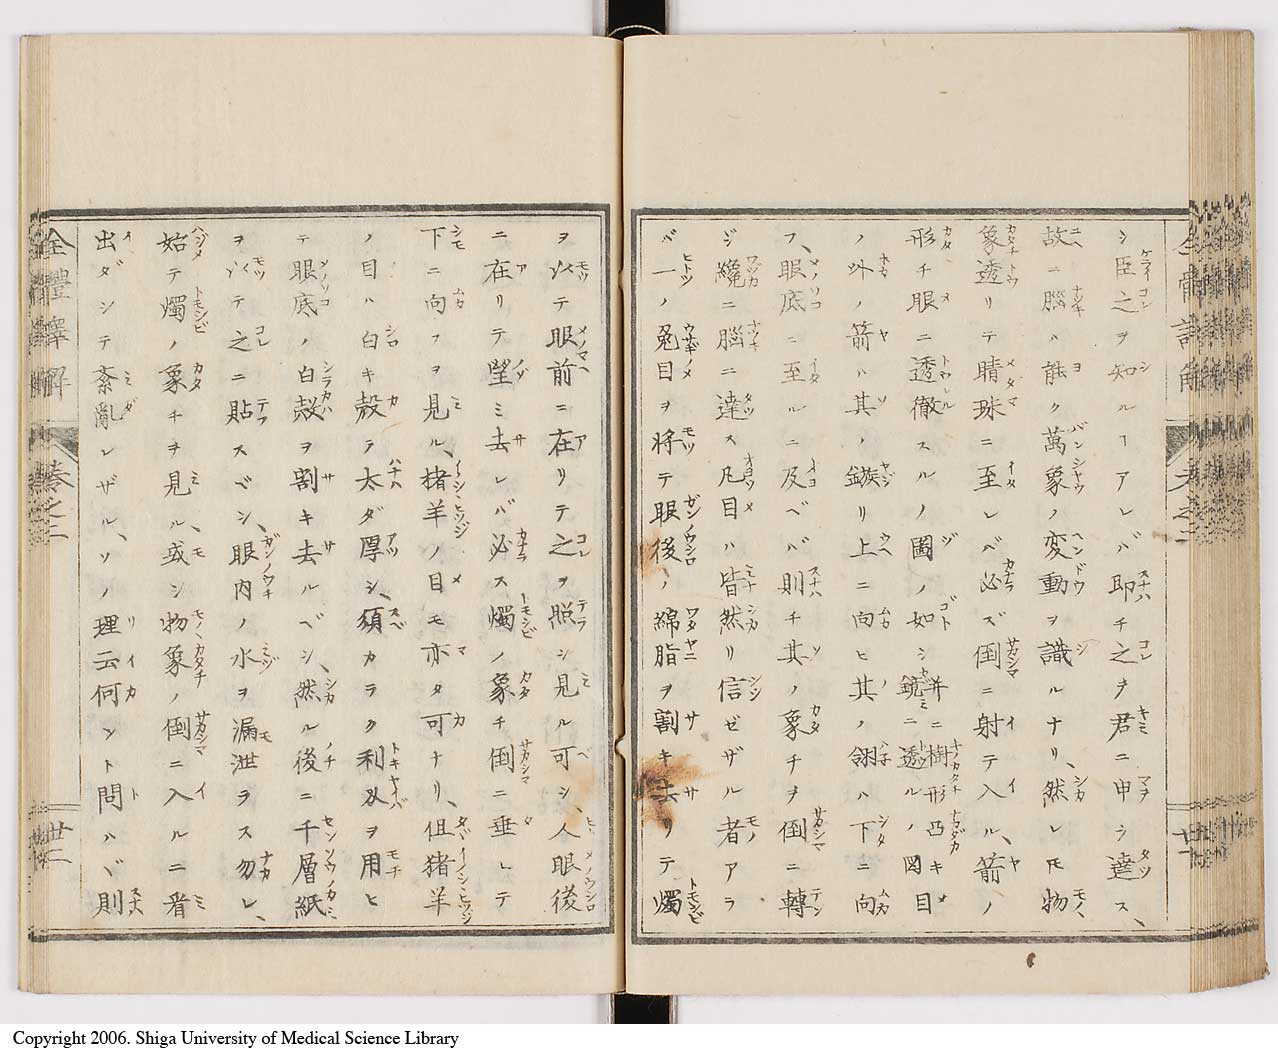 シ臣之ヲ知ルヿアレバ即チ之ヲ君ニ申シ達ス、
故ニ腦ハ能ク萬象ノ変動ヲ識ルナリ、然レ𪜈物
象透リテ睛珠ニ至レバ必ズ倒ニ射テ入ル、箭ノ
形チ眼ニ透徹スルノ圖ノ如シ鏡ニ透ルノ図 并ニ樹形凸キ目
ノ外ノ箭ハ其ノ鏃リ上ニ向ヒ其ノ翎ハ下ニ向
フ、眼底ニ至ルニ及ベバ則チ其ノ象チヲ倒ニ轉
ジ纔ニ腦ニ達ス凡目ハ皆然リ信ゼザル者アラ
バ一ノ兔目ヲ将テ眼後ノ綿脂ヲ割キ去リテ燭
ヲ以テ眼前ニ在リテ之ヲ照シ見ル可シ、人眼後
ニ在リテ望ミ去レバ必ス燭ノ象チ倒ニ垂レテ
下ニ向フヲ見ル、猪羊ノ目モ亦タ可ナリ、但猪羊
ノ目ハ白キ殼ラ太ダ厚シ、須カラク利刄ヲ用ヒ
テ眼底ノ白殼ヲ割キ去ルベシ、然ル後ニ千層紙
ヲ以テ之ニ貼スベシ、眼内ノ水ヲ漏泄ラス勿レ、
始テ燭ノ象チヲ見ル、或シ物象ノ倒ニ入ルニ看
出ダシテ紊亂レザル、ソノ理云何ント問ハヾ則
全體譯解 巻之二
廿二
Copyright 2006. Shiga University of Medical Science Library